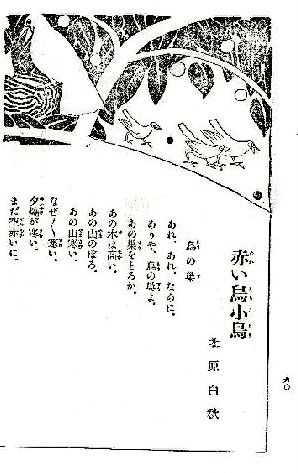 赤い鳥小鳥
北原白秋
鳥の巣
あれ、あれ、なあに。
ありや、鳥の巣よ。
あの巣をとるか。
あの木は高い。
あの山のぼる。
あの山寒い。
なぜ〳〵寒い。
夕焼が寒い。
まだ赤いに。
九〇